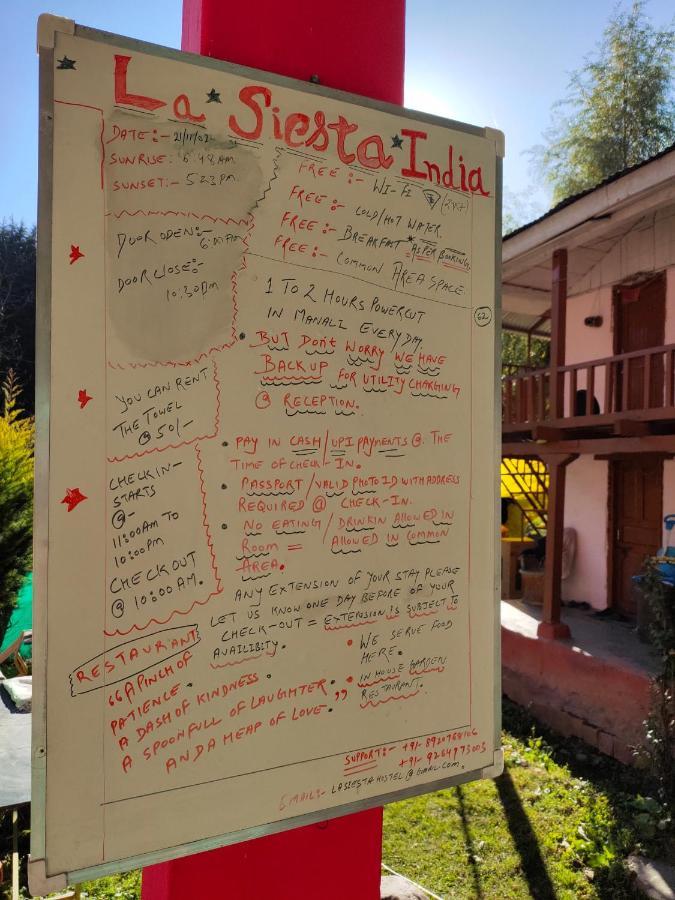 La Siesta India
DATE:- 21/11/02
SUNRISE: 6:48AM
SUNSET:- 5:23PM.
DOOR OPEN:-
6:00AM
DOOR CLOSE:-
10:30PM
YOU CAN RENT
THE TOWEL
@ 50/-
CHECKIN-
STARTS
@-
11:00AM TO
10:00PM
CHECK OUT
@ 10:00 AM.
FREE:- WI-FI (24x7)
FREE:- COLD/HOT WATER.
FREE:- BREAKFAST* AS PER BOOKING.
FREE:- COMMON AREA SPACE.
62
1 TO 2 HOURS POWERCUT
IN MANALI EVERYDAY.
• BUT DON'T WORRY WE HAVE
BACKUP FOR UTILITY CHARGING
@ RECEPTION.
• PAY IN CASH/UPI PAYMENTS @. THE
TIME OF CHECK-IN.
• PASSPORT/VALID PHOTO ID WITH ADDRESS
REQUIRED @ CHECK-IN.
• NO EATING/DRINKIN ALLOWED IN
ROOM = ALLOWED IN COMMON
AREA.
ANY EXTENSION OF YOUR STAY PLEASE
LET US KNOW ONE DAY BEFORE OF YOUR
CHECK-OUT = EXTENSION IS SUBJECT TO
AVAILIBITY.
RESTAURANT
"A PINCH OF
PATIENCE.
A DASH OF KINDNESS.
A SPOONFULL OF LAUGHTER.
AND A HEAP OF LOVE."
• WE SERVE FOOD
HERE.
• IN HOUSE GARDEN
RESTAURANT.
SUPPORT:- +91-8920768106
+91-9264973003
EMAIL:- LASIESTAHOSTEL@GMAIL.COM.